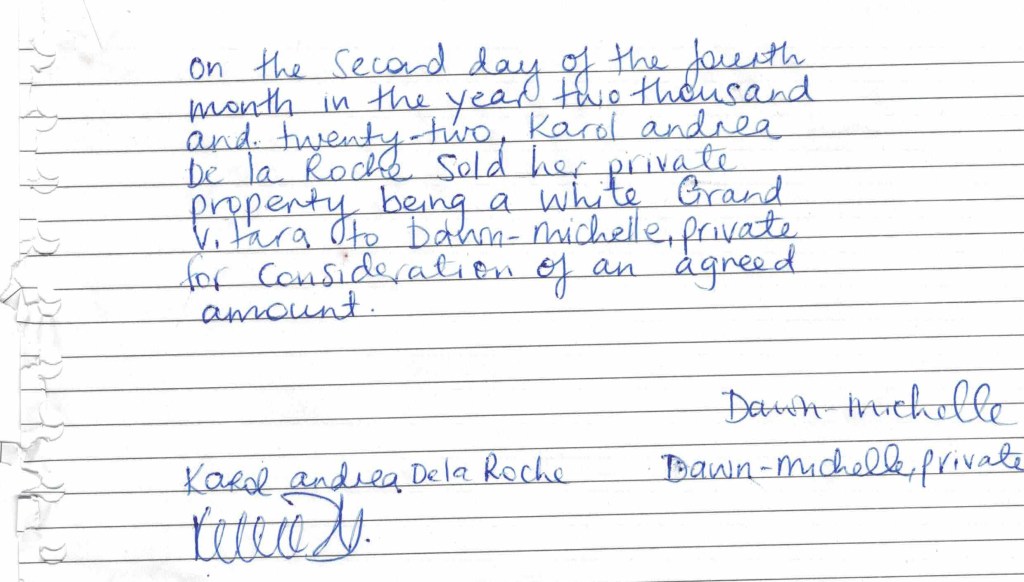 on the second day of the fourth
month in the year two thousand
and. twenty-two, Karol andrea
De la Roche Sold her private
property being a white Grand
Vitara to Dawn-michelle, private
for consideration of an agreed
amount.
Dawn-michelle
Karol andrea De la Roche Dawn-michelle, private